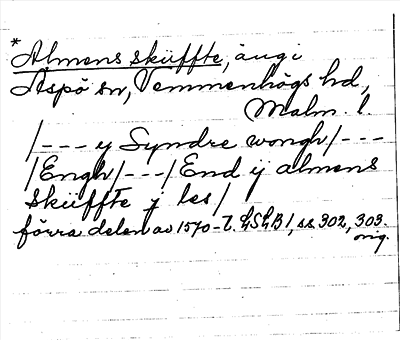 *Almens skùffte, äng i
Äspö sn, Vemmenhögs hd,
Malm. l.
/--- y Syndre wongh/---
/Engh/---/End ÿ almens
skùffte y les/
förra delen av 1570-t. LSLB1, ss 302, 303.
orig.